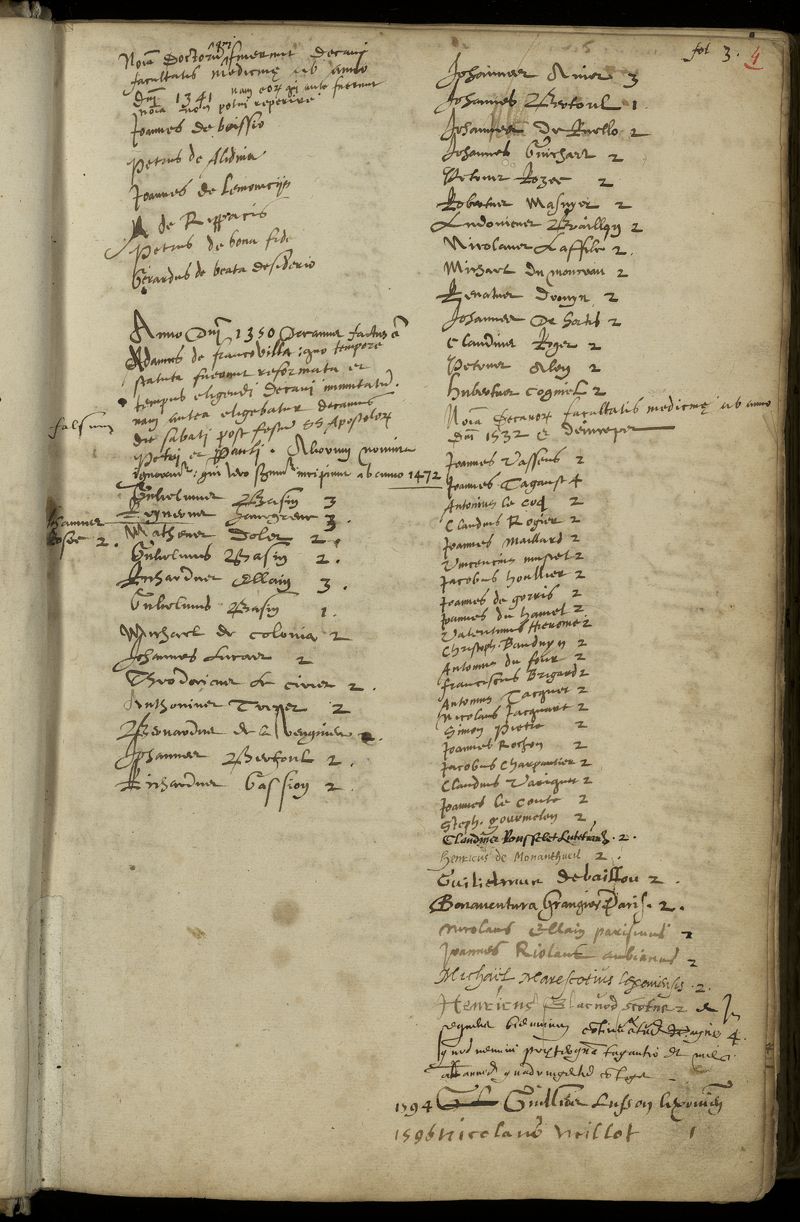 fol 3. 4
Noīa Doctorū qui fuerunt decani
facultatis medicinę ab anno
Dnī 1341 nam eorū qui ante fuerunt
noīa non potui reperire
Joannes de boissio
Petrus de Alidina
Joannes de Lemomcijs
de Rippaciis
Petrus de bona fide
Gerardus de beata desiderio
Anno Dnī 1350 Decanus factus ē
Adamus de francovilla : quo tempore
statuta fuerunt reformata et
tempus eligendi decani immutatū.
nam antea eligebatur decanus
falsum
die sabati post festū SS Apostolorū
Petri et Pauli. Aliorum nomina
ignorantur : qui vero sequuntur incipiunt ab anno 1472
Guhelmus Basin 3
3.
Johannes Rosee 2.
Matheus Dolet 2.
Guhelmus Basin 2.
Richardus Ellain 3.
Guhelmus Basin 1.
Michael de colonia 2
Johannes Lucae 2
Theodoricus de cirier 2.
Anthonius 2
Bernardus de 2
Johannes Berfoul 2.
Richardus Gassion 2.
Johannes Avier 3
Johannes Bertoul 1.
Johannes De Ruello 2
Johannes Guichart 2
Petrus Rozee 2
Robertus Masuyer 2
Ludovicus Braillon 2
Nicolaus Laffile 2.
Michael du monceau 2
Renatus drouyn 2
Johannes De Hortis 2
Claudius Roger 2
Petrus Alen 2
Hubertus cogniel 2
Noīa Decanorū facultatis medicinę ab anno
Dnī 1532 et deinceps
Joannes Vasseus 2
Joannes Tagault 4
Antonius le coq 2
Claudius Rogier 2
Joannes Maillard 2
Vincentius mustel 2
Jacobus houllier 2
Joannes de gorris 2
Joannes du hamel 2
Valentinus Hierome 2
Christoph. Bauduyn 2
Antonius du four 2
franciscus Brigard 2
Antonius Tacquet 2
Nicolaus Jacquart 2
Simon Pietre 2
Joannes Rochon 2
Jacobus Charpentier 2
Claudius Varique 2
Joannes le Conte 2
Steph. gourmelen 2
Claudius Rousselet Lutetian. 2.
Henricus de Monantheuil 2.
Guilielmus de baillou 2.
Bonaventura Grangier Paris. 2.
Nicolaus Ellain parisinus 2
Joannes Riolant ambianus 2
Michaël Marescotius lexoviensis. 2.
Henricus Blacuod scotus 2 et In
4.
1594 Guillelmus Lusson
1596 Nicolaus Millot 1